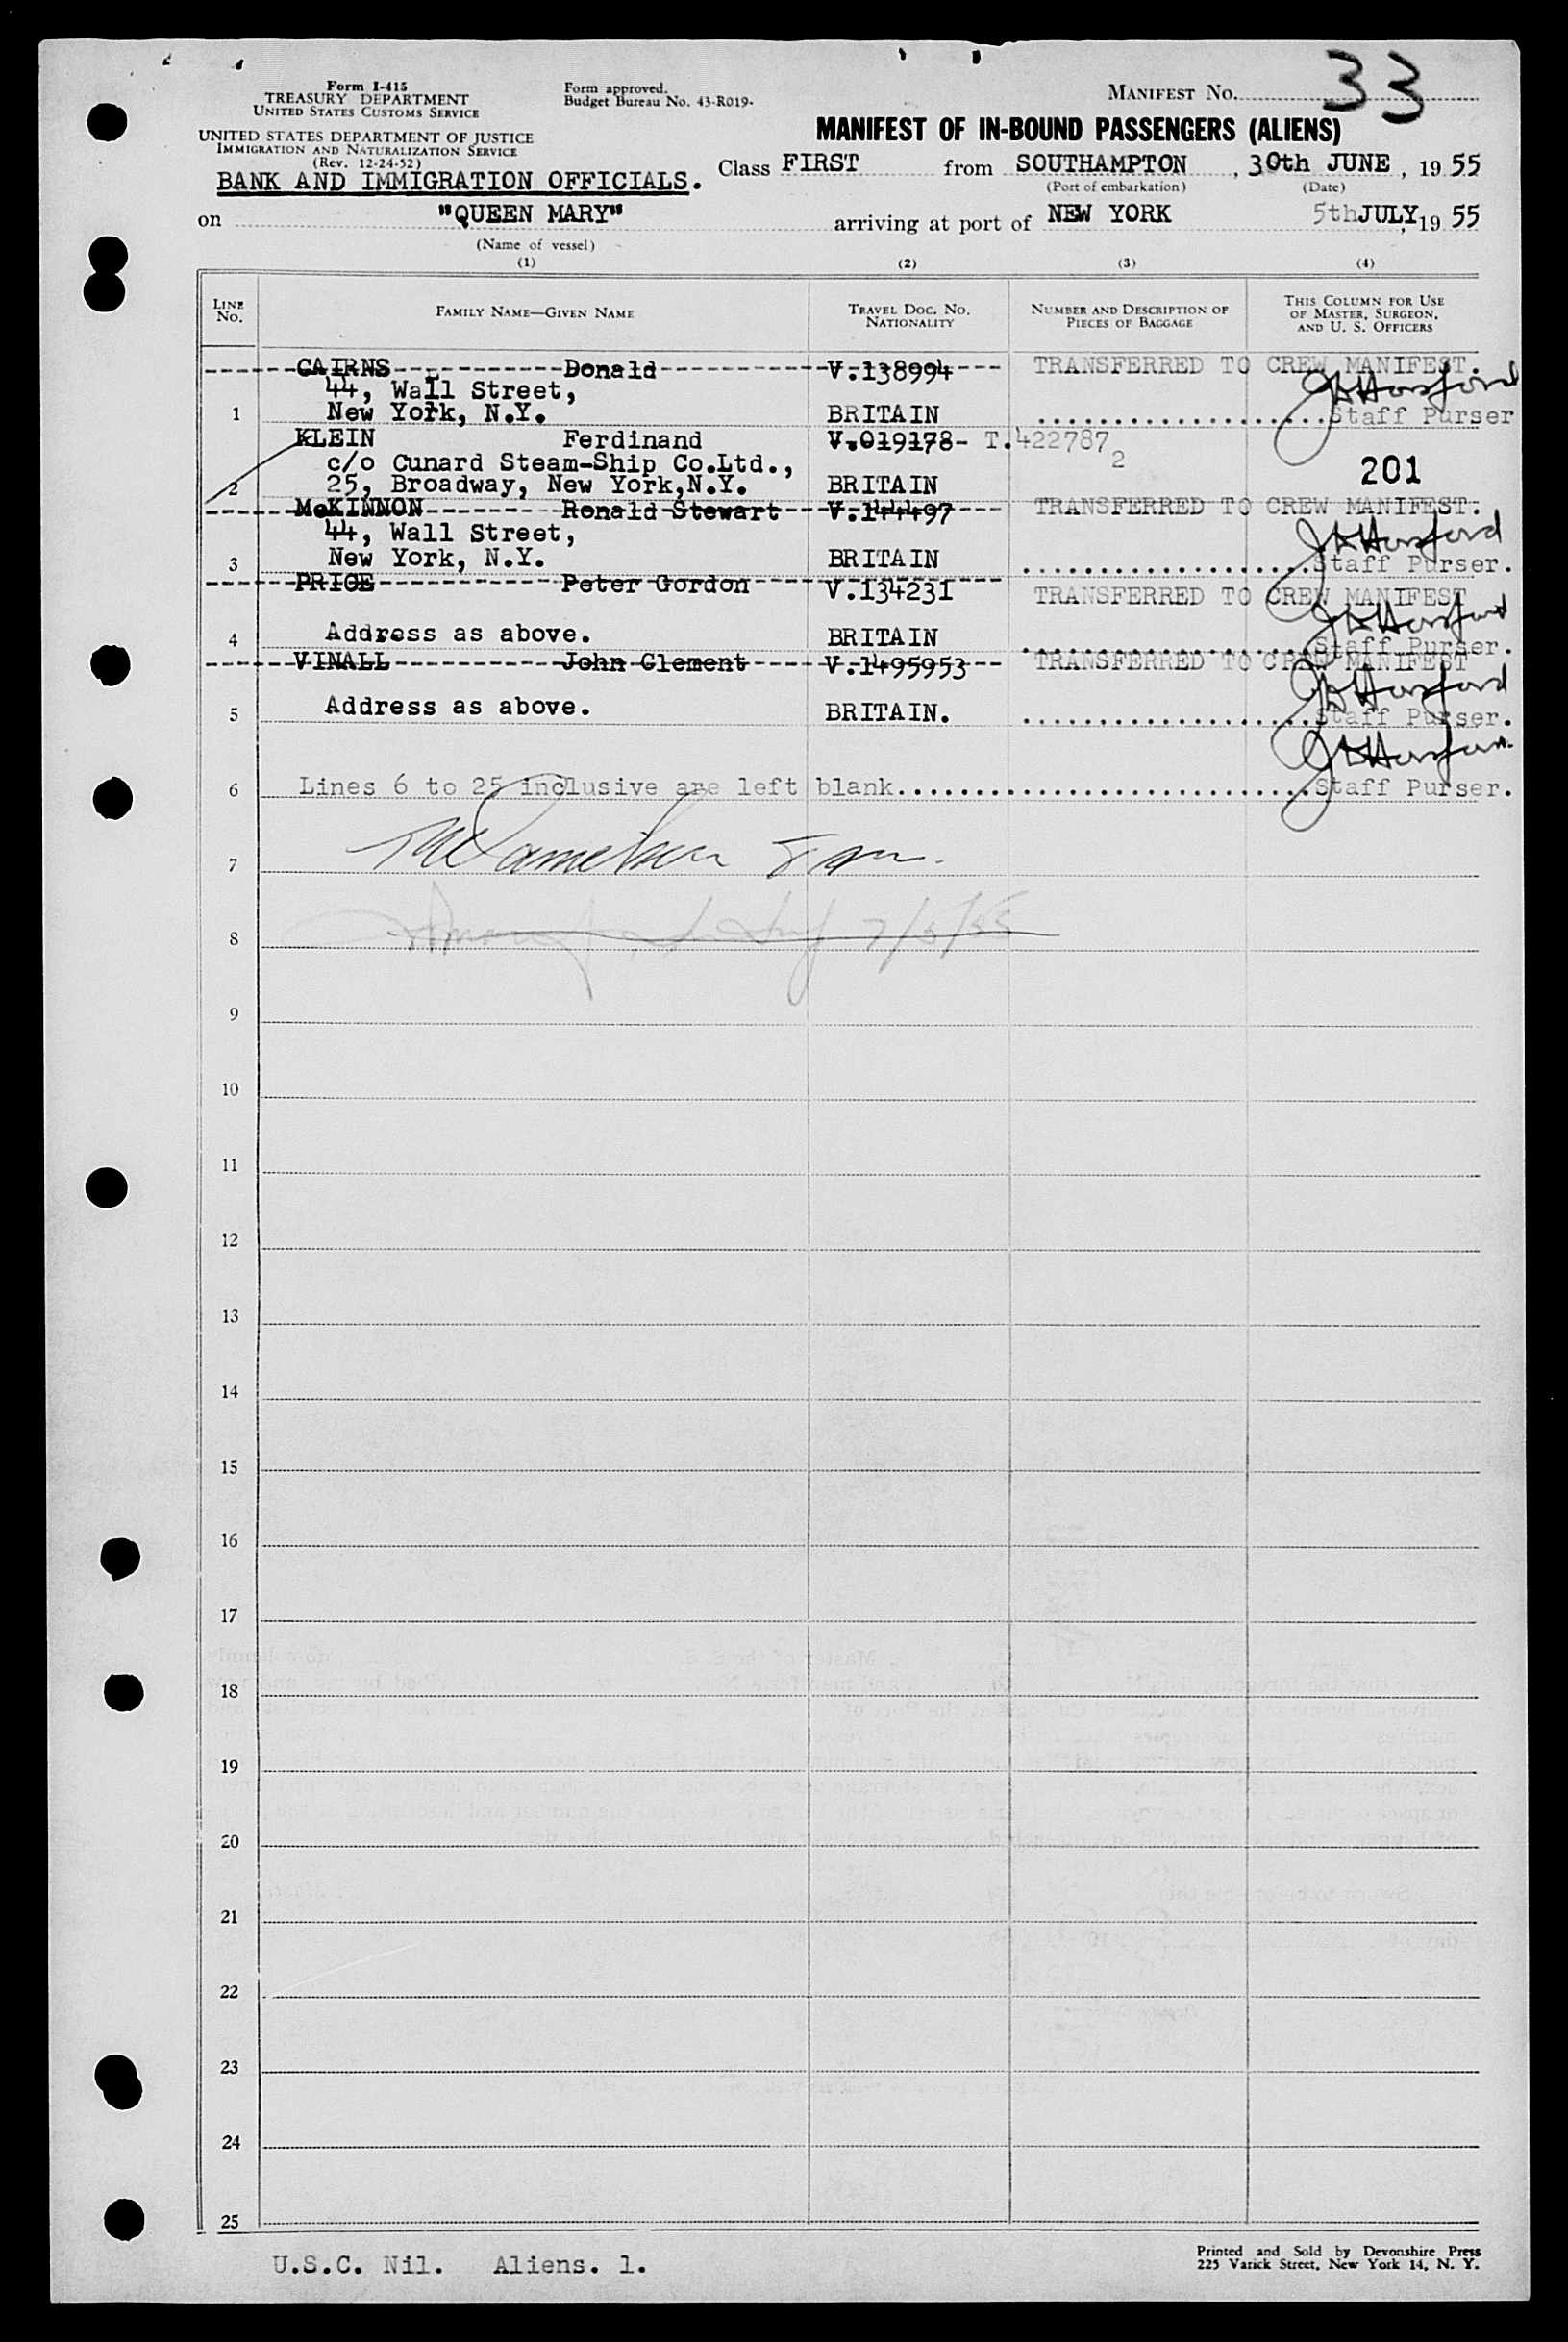 33
Form I-415
TREASURY DEPARTMENT
UNITED STATES CUSTOMS SERVICE
Form approved.
Budget Bureau No. 43-R019-
MANIFEST No.
UNITED STATES DEPARTMENT OF JUSTICE
IMMIGRATION AND NATURALIZATION SERVICE
(Rev. 12-24-52)
MANIFEST OF IN-BOUND PASSENGERS (ALIENS)
BANK AND IMMIGRATION OFFICIALS.
Class FIRST from SOUTHAMPTON, 30th JUNE, 1955
(Port of embarkation) (Date)
on "QUEEN MARY" arriving at port of NEW YORK 5th JULY, 1955
(Name of vessel)
(1) (2) (3) (4)
LINE No. FAMILY NAME—GIVEN NAME TRAVEL DOC. NO. NATIONALITY NUMBER AND DESCRIPTION OF PIECES OF BAGGAGE THIS COLUMN FOR USE OF MASTER, SURGEON, AND U. S. OFFICERS
CAIRNS Donald V.138994 TRANSFERRED TO CREW MANIFEST.
44, Wall Street,
1 New York, N.Y. BRITAIN Staff Purser
KLEIN Ferdinand V.019178- T.422787
c/o Cunard Steam-Ship Co.Ltd., 2 201
2 25, Broadway, New York,N.Y. BRITAIN
McKINNON Ronald Stewart V.144497 TRANSFERRED TO CREW MANIFEST.
44, Wall Street,
3 New York, N.Y. BRITAIN Staff Purser.
PRICE Peter Gordon V.134231 TRANSFERRED TO CREW MANIFEST
4 Address as above. BRITAIN Staff Purser.
VINALL John Clement V.1495953 TRANSFERRED TO CREW MANIFEST
5 Address as above. BRITAIN. Staff Purser.
6 Lines 6 to 25 inclusive are left blank Staff Purser.
7
8 7/5/55
9
10
11
12
13
14
15
16
17
18
19
20
21
22
23
24
25
U.S.C. Nil. Aliens. 1.
Printed and Sold by Devonshire Press
225 Varick Street, New York 14, N. Y.